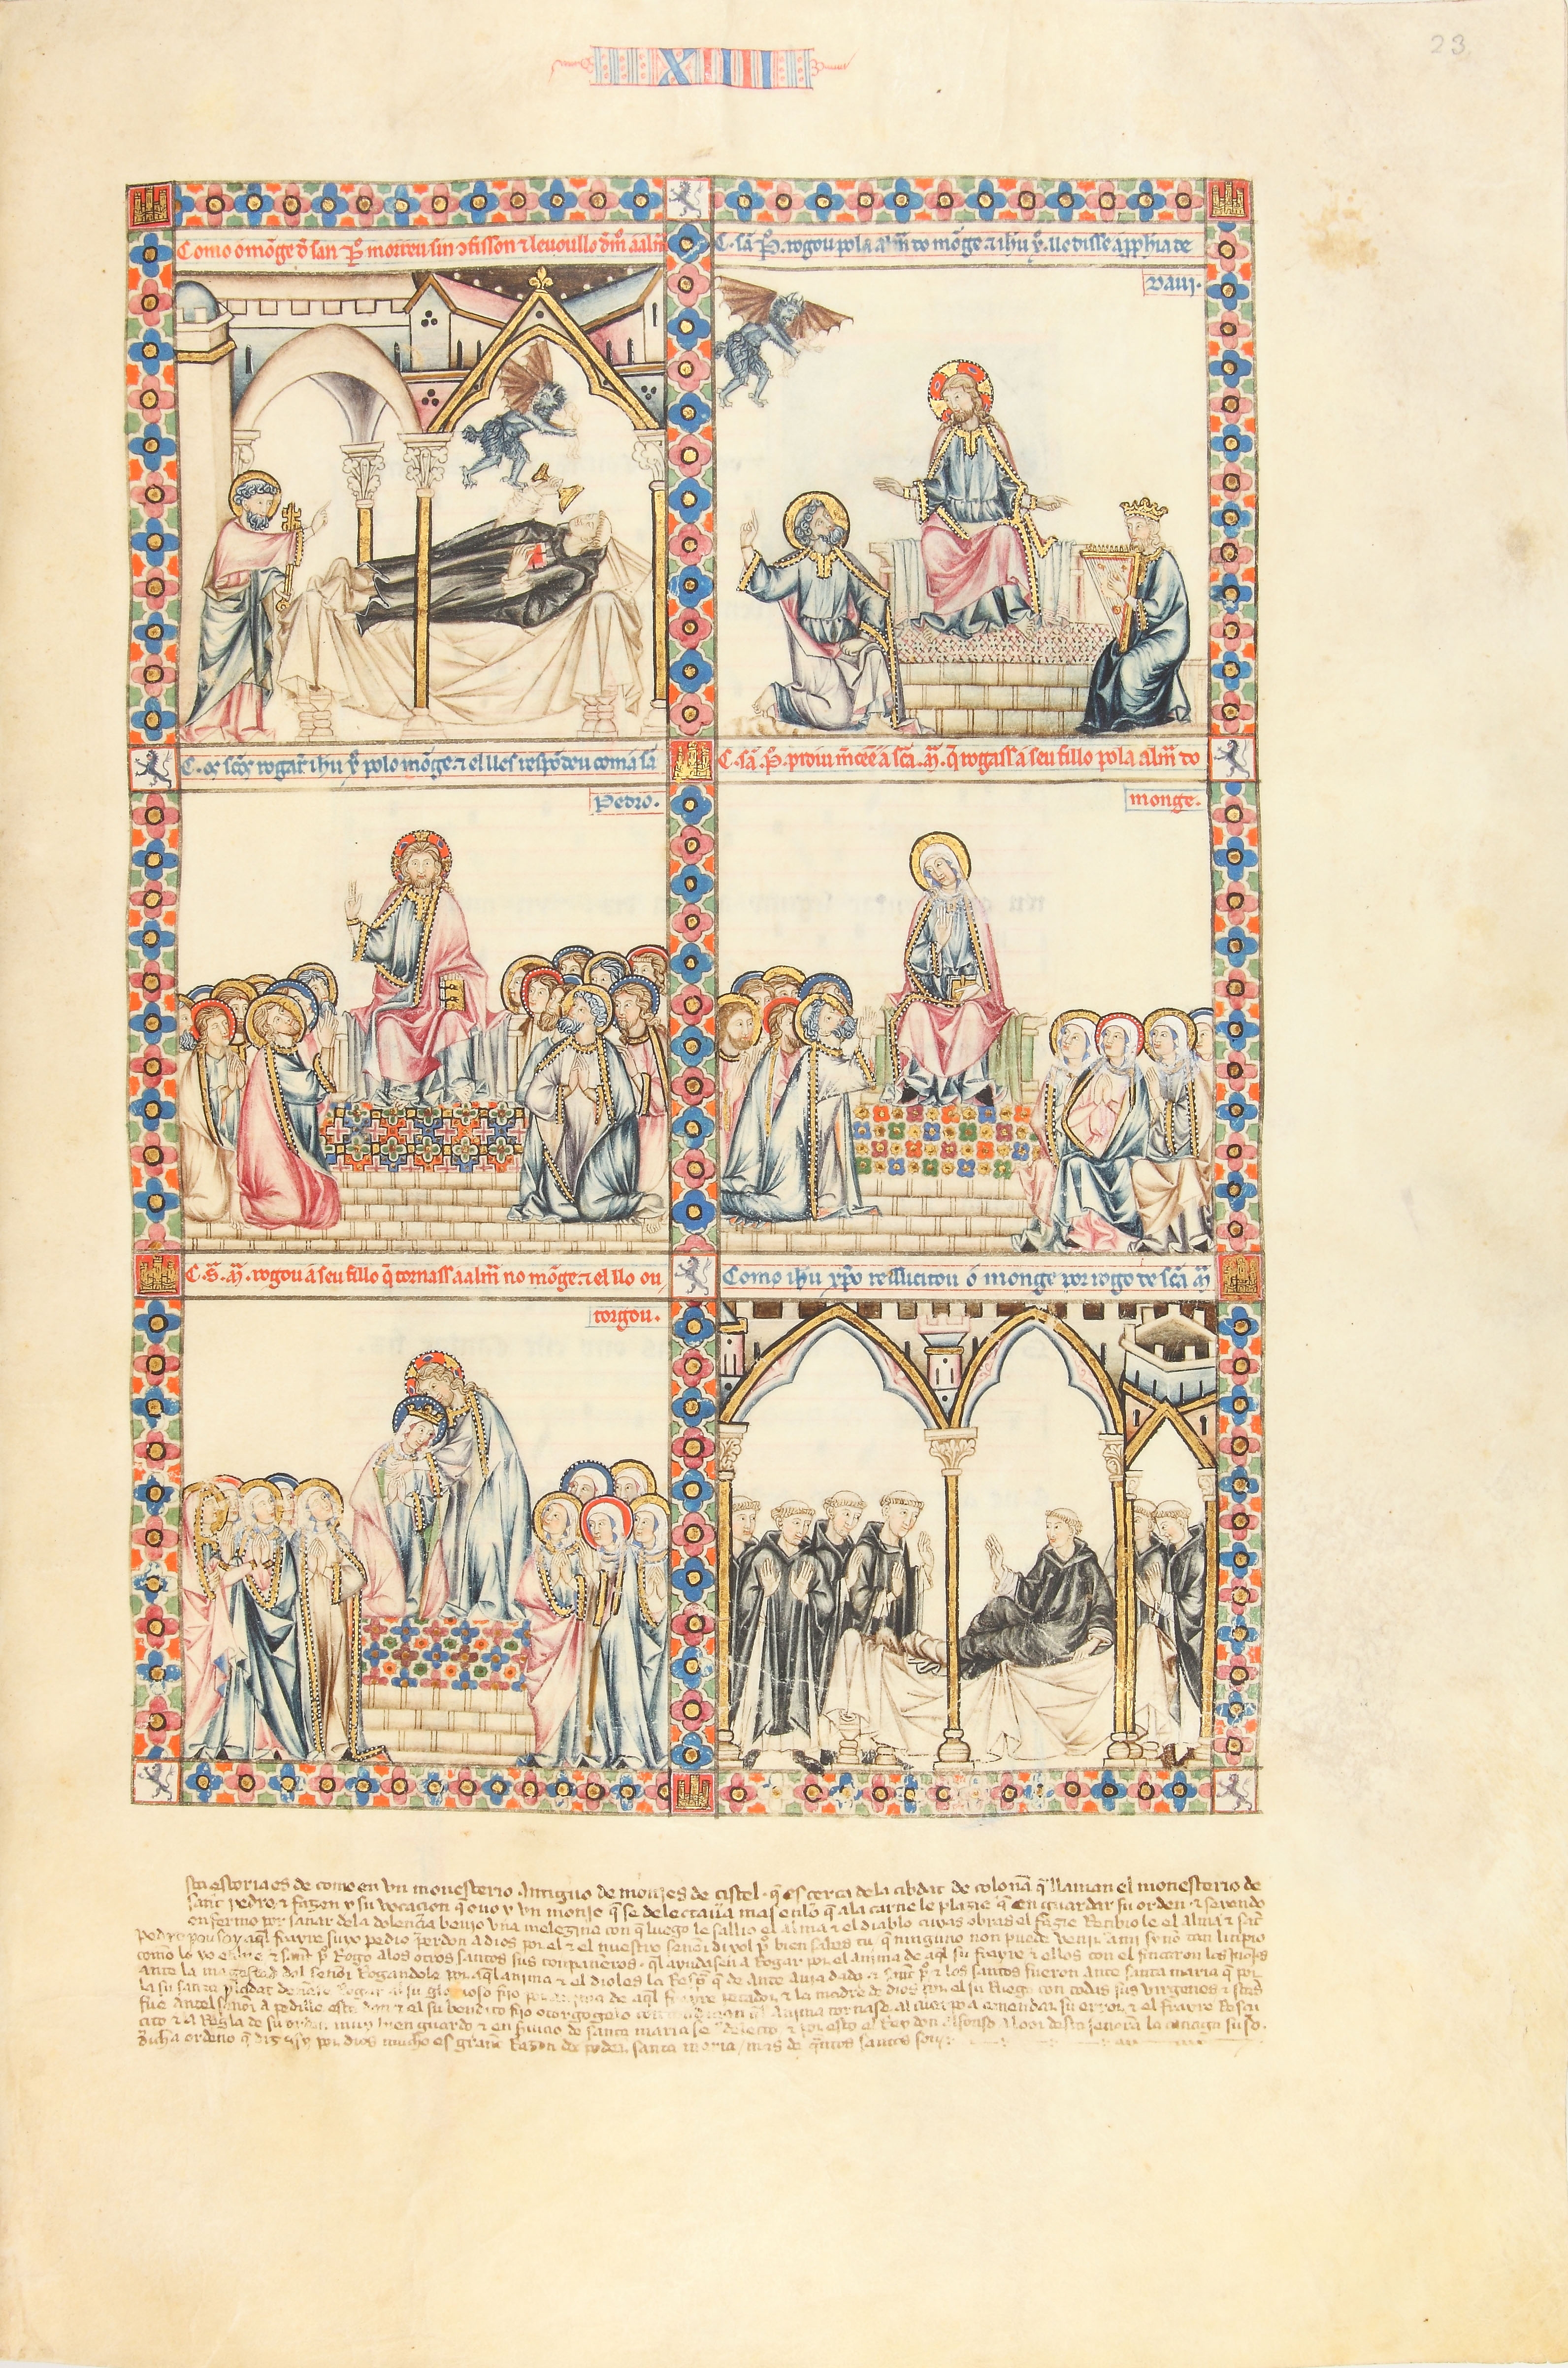 XIIII
23
Como o mõge d̃ san P̃º morreu sin ɔfisson ⁊ levoullo dm̃o a alm̃
C. sã. P̃º. rogou pola alm̃ do mõge ⁊ ih̃u x̃. lle disse a p̃phia de
Davi.
C. os sc̃os rogar̃ ih̃u x̃ polo mõge. ⁊ el lles respõdeu com a sã
Pedro.
C. sã. P̃º. p̃diu m̃cee a sc̃a. M̃. q̃ rogass a seu fillo pola alm̃ do
monge.
C. S̃. M̃. rogou a seu fillo q̃ tornass a alm̃ no mõge. ⁊ el llo ou
torgou.
Como ih̃u xp̃o ressucitou o monge por rogo de sc̃a M̃
sta estoria es de como en un monesterio Antiguo de monjes de cistel. q̃ es cerca de la cibdat de colonã q̃ llaman el monesterio de
sant pedro. ⁊ fazon y su vocacion q̃ ovo y un monje q̃ se delectava mas en lo q̃ a la carne le plazie q̃ en guardar su orden. ⁊ seyendo
enfermo por sanar de la dolencia bevio una melezina con q̃ luego le sallio el alma ⁊ el diablo cuyas obras el fazie Recibio le el alma ⁊ sant
pedro aq̃l frayre suyo pedio perdon a dios por el ⁊ el nuestro señor dixol p̃º bien sabes tu q̃ ninguno non puede venir a mi sy no tan limpio
como lo yo ⁊ sant p̃º Rogo a los otros santos sus compañeros. q̃l ayudasen a Rogar por el anima de aq̃l su frayre ⁊ ellos con el fincaron los inojos
ante la magestad del señor Rogandole por aq̃l anima ⁊ el dioles la Resp̃ q̃ de ante avia dado ⁊ sant p̃º ⁊ los santos fueron ante santa maria q̃ por
la su santa piedat Rogar a su glorioso fijo por anima de aq̃l frayre pecador, ⁊ la madre de dios por el su Ruego con todas sus virgenes ⁊ stos
fue antel señor a pedille este don ⁊ el su bendito fijo otorgogelo anima tornase al cuerpo a emendar su error, ⁊ el frayre Resu
cito ⁊ la Regla de su orden muy bien guardo ⁊ en serviçio de santa maria se delecto, ⁊ por esto el Rey don alfonso a loor desta señora la suso
dicha ordeno q̃ dize asy por dios mucho es gran Razon de poder. santa maria / mas de q̃ntos santos son